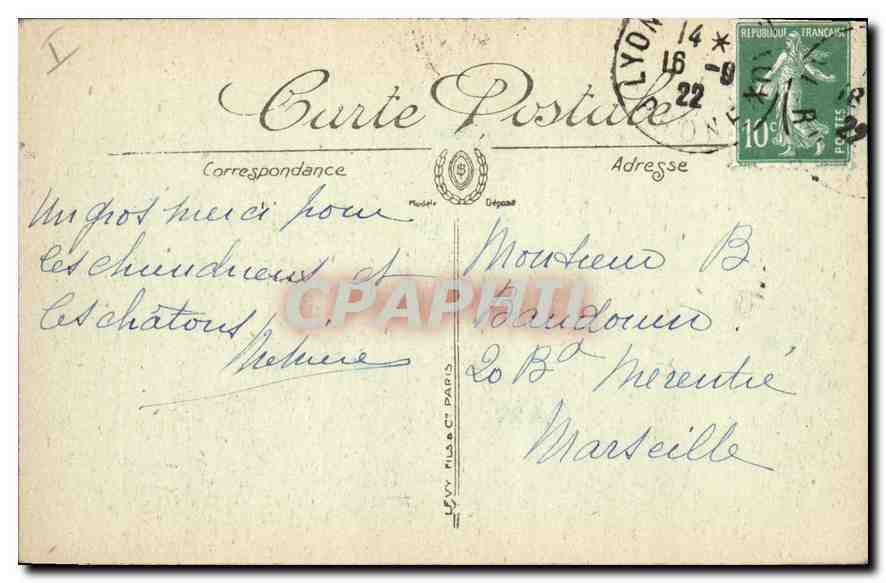 LYON
14 *
16 -9
22
REPUBLIQUE FRANÇAISE
10c
POSTES
Carte Postale
Correspondance
Adresse
Modèle Déposé
Un gros merci pour
les
et
les châtons
Monsieur B.
Baudouin
20 Bd Mérentié
Marseille
CPAPHIL
LEVY FILS & Cie PARIS